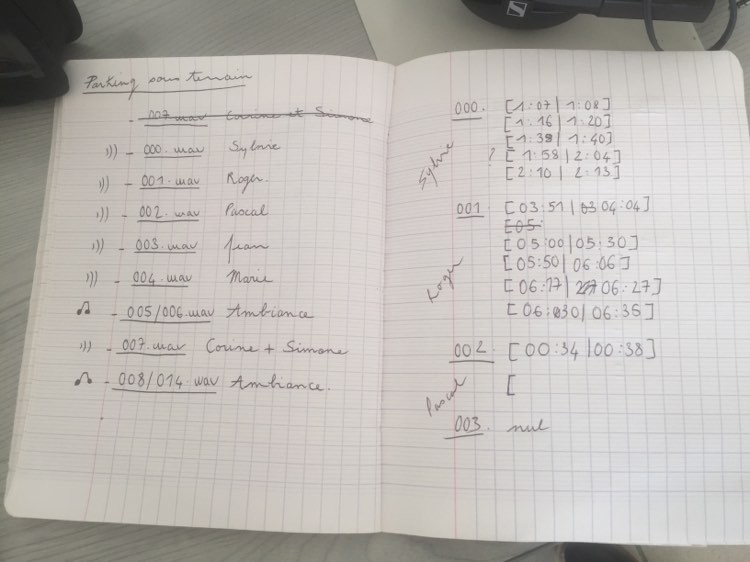 Parking sous terrain
- 007.wav Corinne et Simone
))) - 000.wav Sylvie
))) - 001.wav Roger.
))) - 002.wav Pascal
))) - 003.wav Jean
))) - 004.wav Marie
♫ - 005/006.wav Ambiance
))) - 007.wav Corine + Simone
♫ - 008/014.wav Ambiance.
000. [1:07 | 1:08]
[1:16 | 1:20]
[1:38 | 1:40]
? [1:58 | 2:04]
[2:10 | 2:13]
Sylvie
001 [03:51 | 03 04:04]
[05:
[05:00 | 05:30]
[05:50 | 06:06]
[06:17 | 06:27]
[06:30 | 06:35]
Roger
002. [00:34 | 00:38]
[
Pascal
003. nul